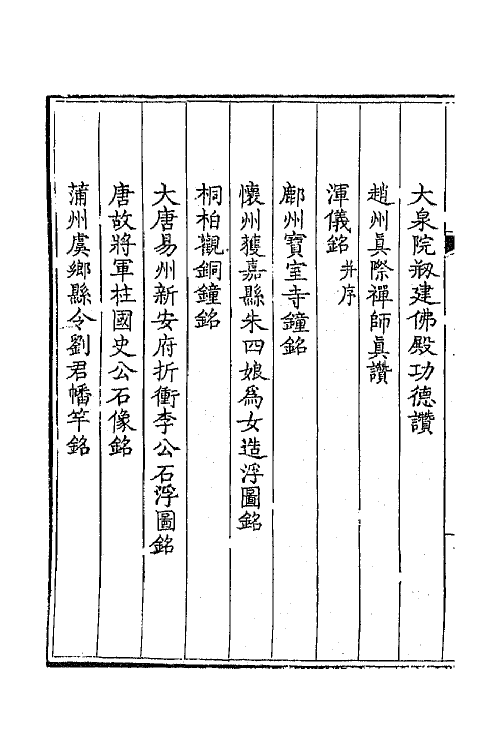 大泉院剏建佛殿功德讚
趙州眞際禪師眞讚
渾儀銘并序
鄜州寶室寺鐘銘
懷州獲嘉縣朱四娘爲女造浮圖銘
桐柏觀銅鐘銘
大唐易州新安府折衝李公石浮圖銘
唐故將軍柱國史公石像銘
蒲州虞鄉縣令劉君幡竿銘